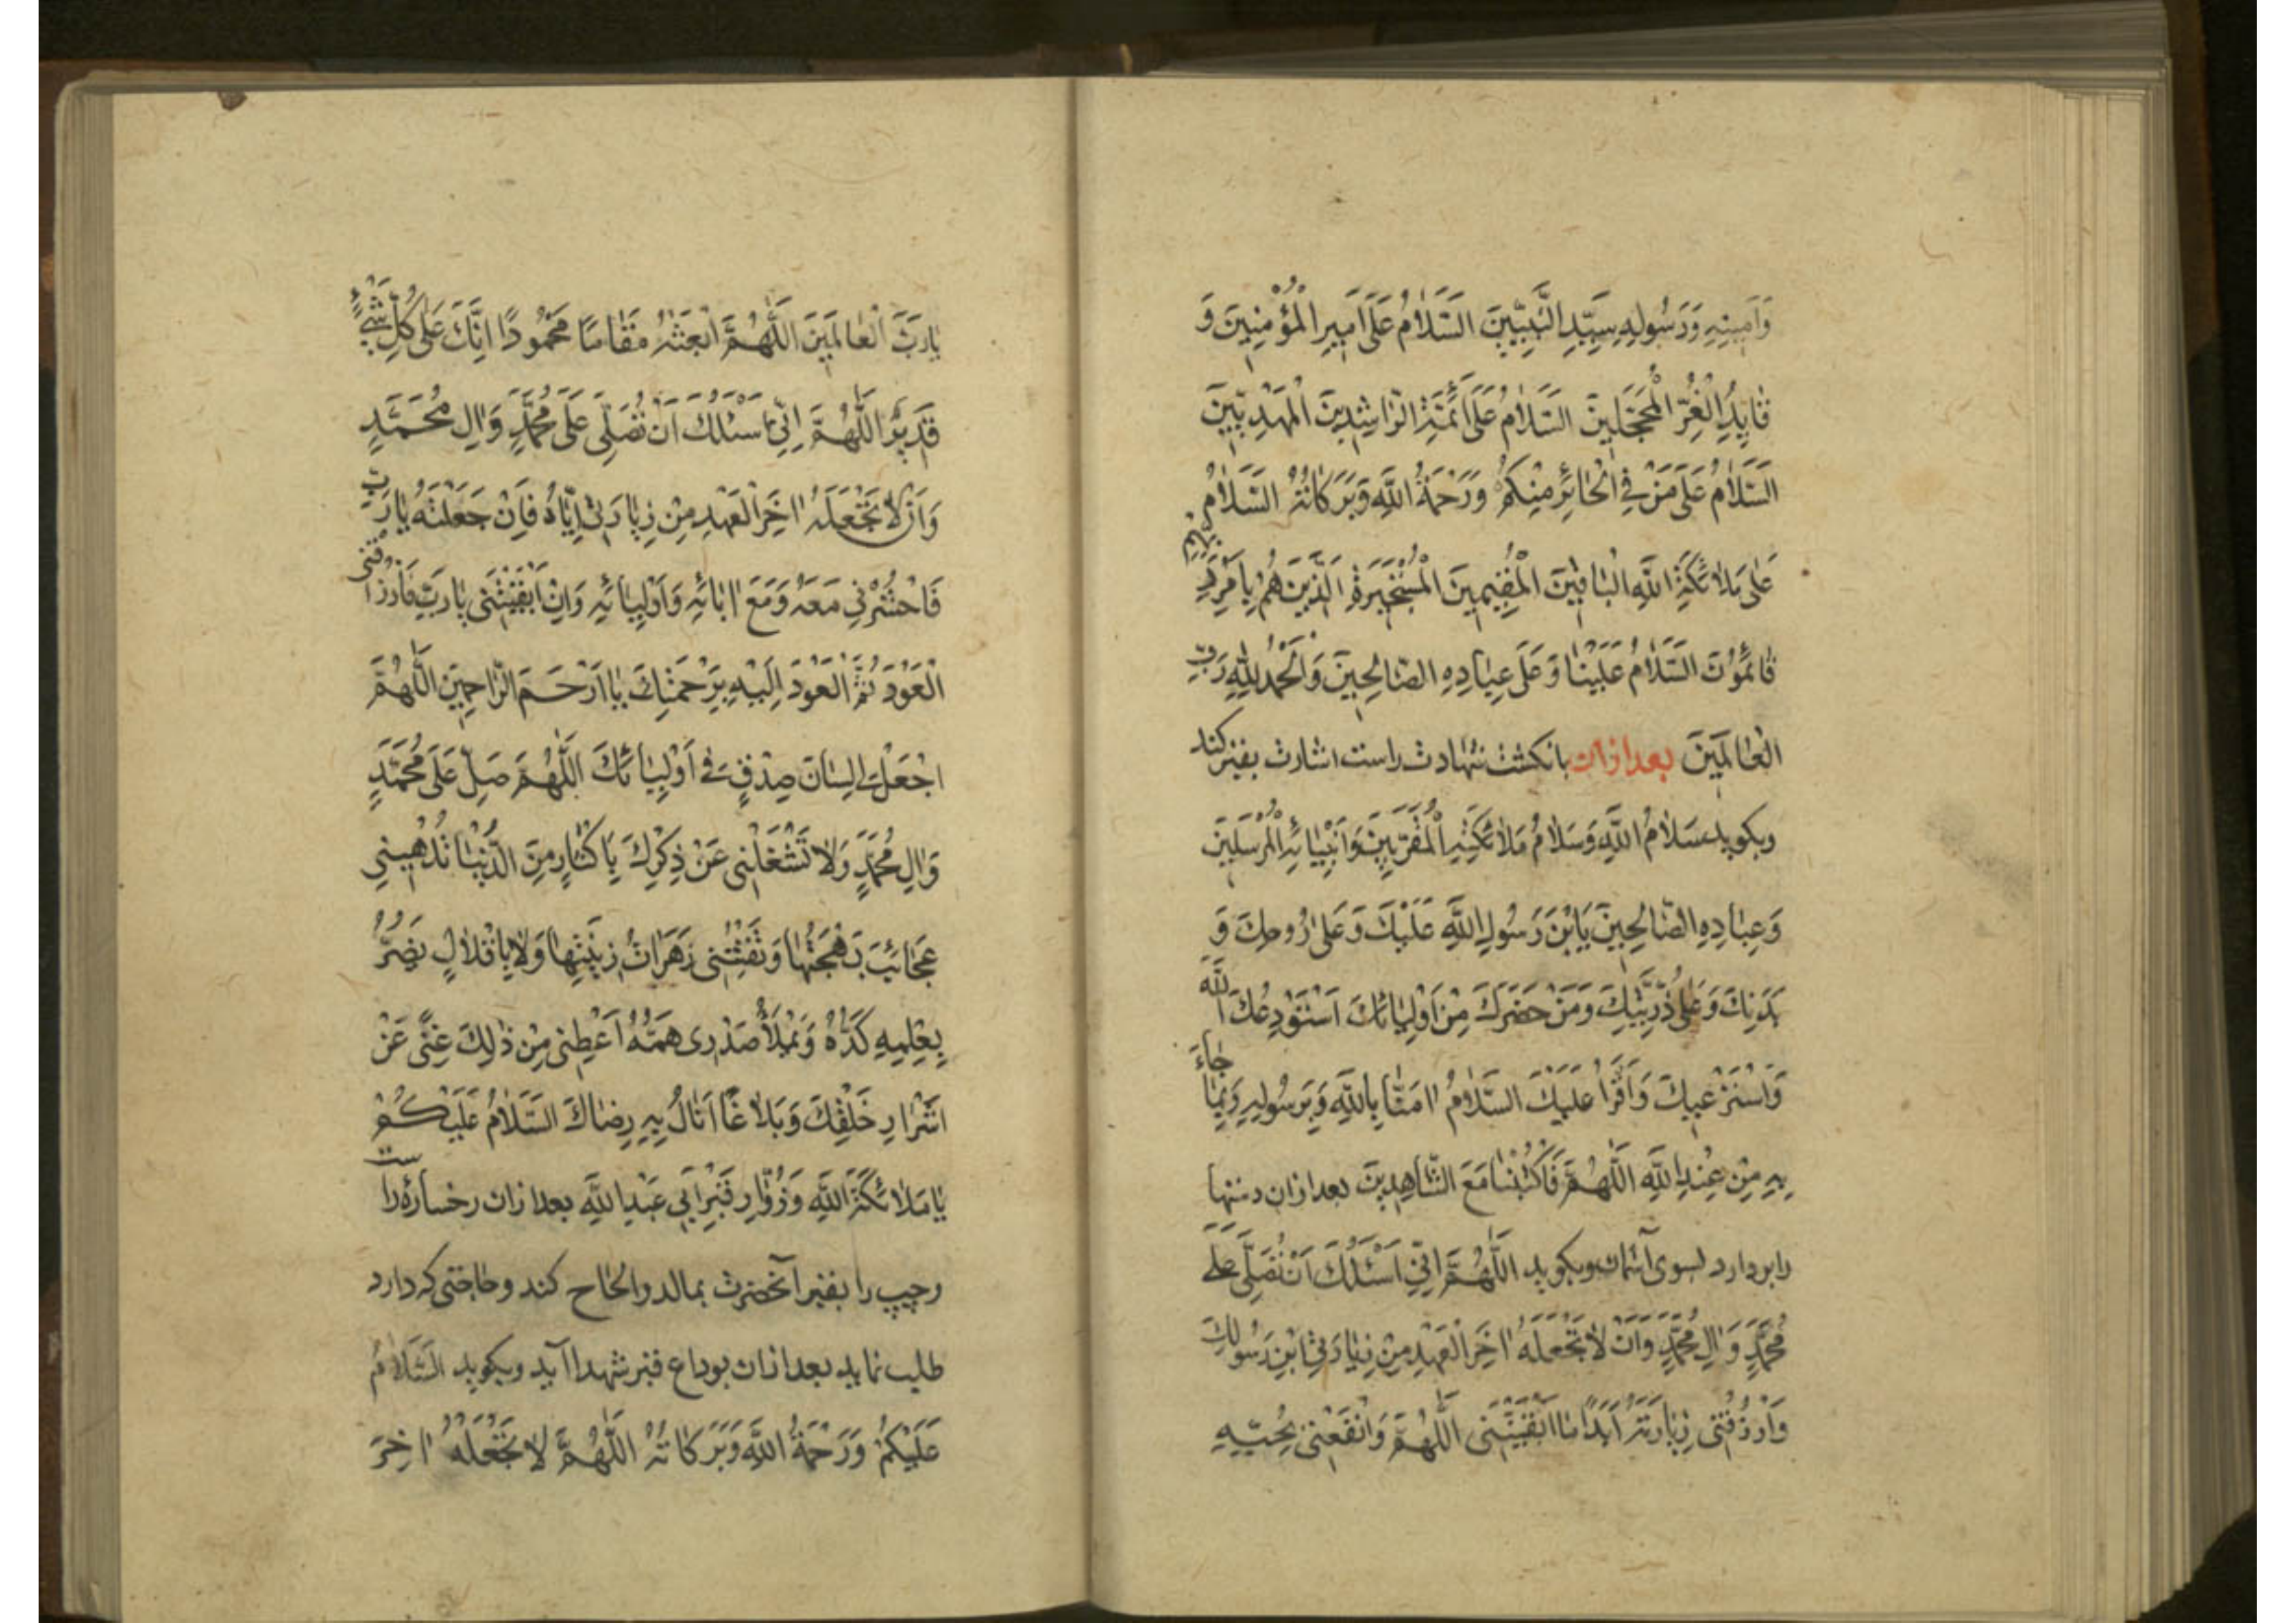 وَاَمِينِهِ وَرَسُولِهِ سَيِّدِ النَّبِيّينَ السَّلَامُ عَلَى اَمِيرِ الْمُؤْمِنِينَ وَ
قَايِدِ الْغُرِّ الْمُحَجَّلِينَ السَّلَامُ عَلَى اَئِمَّةِ الرَّاشِدِينَ الْمَهْدِيّينَ
السَّلَامُ عَلَى مَنْ فِي الْحَائِرِ مِنْكُمْ وَرَحْمَةُ اللَّهِ وَبَرَكَاتُهُ السَّلَامُ
عَلَى مَلَائِكَةِ اللَّهِ الْبَاقِينَ الْمُقِيمِينَ الْمُسَبِّحِينَ الَّذِينَ هُمْ بِاَمْرِ رَبِّهِمْ
قَائِمُونَ السَّلَامُ عَلَيْنَا وَعَلَى عِبَادِهِ الصَّالِحِينَ وَالْحَمْدُ لِلَّهِ رَبِّ
الْعَالَمِينَ بعد ازان بانکشت شهادت راست اشارت بقبر کند
وبکوید سَلَامُ اللَّهِ وَسَلَامُ مَلَائِكَتِهِ الْمُقَرَّبِينَ وَاَنْبِيَائِهِ الْمُرْسَلِينَ
وَعِبَادِهِ الصَّالِحِينَ يَابْنَ رَسُولِ اللَّهِ عَلَيْكَ وَعَلَى رُوحِكَ وَ
بَدَنِكَ وَعَلَى ذُرِّيَّتِكَ وَمَنْ حَضَرَكَ مِنْ اَوْلِيَائِكَ اَسْتَوْدِعُكَ اللَّهَ
وَاَسْتَرْعِيكَ وَاَقْرَأُ عَلَيْكَ السَّلَامُ اٰمَنَّا بِاللَّهِ وَبِرَسُولِهِ وَبِمَا جَاءَ
بِهِ مِنْ عِنْدِ اللَّهِ اَللَّهُمَّ فَاكْتُبْنَا مَعَ الشَّاهِدِينَ بعد ازان دستها
رابردارد بسوی آسمان وبکوید اَللَّهُمَّ اِنِّي اَسْئَلُكَ اَنْ تُصَلِّيَ عَلَى
مُحَمَّدٍ وَاٰلِ مُحَمَّدٍ وَاَنْ لَا تَجْعَلَهُ اٰخِرَ الْعَهْدِ مِنْ زِيَارَتِي ابْنِ رَسُولِكَ
وَارْزُقْنِي زِيَارَتَهُ اَبَدًا مَا اَبْقَيْتَنِي اَللَّهُمَّ وَانْفَعْنِي بِحُبِّهِ
يَارَبَّ الْعَالَمِينَ اَللَّهُمَّ ابْعَثْهُ مَقَامًا مَحْمُودًا اِنَّكَ عَلَى كُلِّ شَيْءٍ
قَدِيرٌ اَللَّهُمَّ اِنِّي اَسْئَلُكَ اَنْ تُصَلِّيَ عَلَى مُحَمَّدٍ وَاٰلِ مُحَمَّدٍ
وَاَنْ لَا تَجْعَلَهُ اٰخِرَ الْعَهْدِ مِنْ زِيَارَتِي اِيَّاهُ فَاِنْ جَعَلْتَهُ يَارَبِّ
فَاحْشُرْنِي مَعَهُ وَمَعَ اٰبَائِهِ وَاَوْلِيَائِهِ وَاِنْ اَبْقَيْتَنِي يَارَبِّ فَارْزُقْنِي
الْعَوْدَ ثُمَّ الْعَوْدَ اِلَيْهِ بِرَحْمَتِكَ يَا اَرْحَمَ الرَّاحِمِينَ اَللَّهُمَّ
اجْعَلْ لِي لِسَانَ صِدْقٍ فِي اَوْلِيَائِكَ اَللَّهُمَّ صَلِّ عَلَى مُحَمَّدٍ
وَاٰلِ مُحَمَّدٍ وَلَا تَشْغَلْنِي عَنْ ذِكْرِكَ بِاِكْثَارٍ مِنَ الدُّنْيَا تُلْهِينِي
عَجَائِبُ بَهْجَتِهَا وَتَفْتِنُنِي زَهَرَاتُ زِينَتِهَا وَلَا بِاِقْلَالٍ يَضُرُّ
بِعَمَلِي كَدُّهُ وَيَمْلَأُ صَدْرِي هَمُّهُ اَعْطِنِي مِنْ ذٰلِكَ غِنًى عَنْ
اَشْرَارِ خَلْقِكَ وَبَلَاغًا اَنَالُ بِهِ رِضَاكَ السَّلَامُ عَلَيْكُمْ
يَا مَلَائِكَةَ اللَّهِ وَزُوَّارِ قَبْرِ اَبِي عَبْدِ اللَّهِ بعد ازان رخساره راست
وچپ را بقبر آنحضرت بمالد والحاح کند وحاجتی که دارد
طلب نماید بعد ازان بوداع قبر شهدا آید وبکوید السَّلَامُ
عَلَيْكُمْ وَرَحْمَةُ اللَّهِ وَبَرَكَاتُهُ اَللَّهُمَّ لَا تَجْعَلْهُ اٰخِرَ